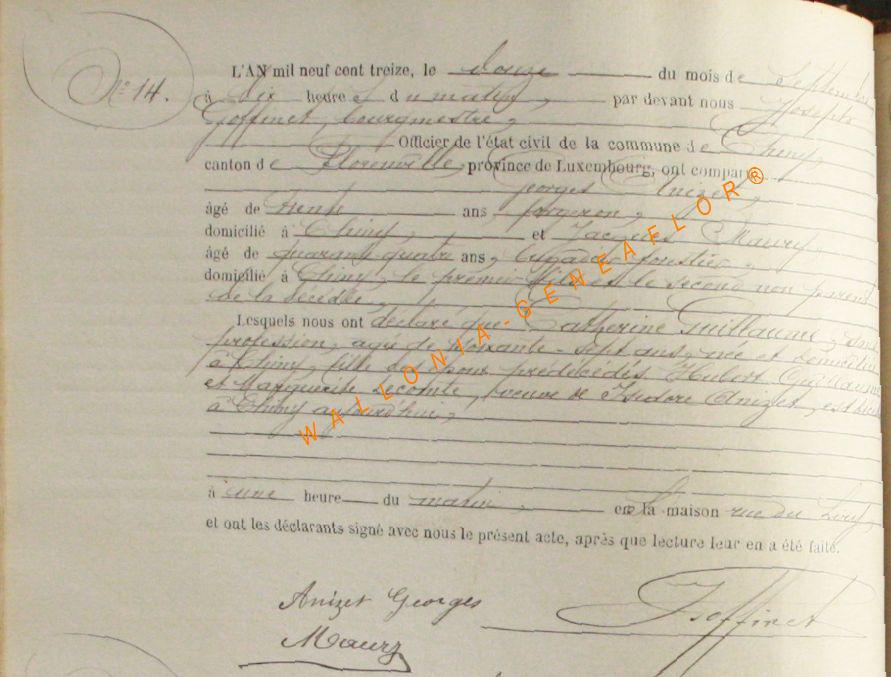 N° 14.
L'AN mil neuf cent treize, le douze du mois de Septembre
à dix heures du matin, par devant nous Joseph
Goffinet, bourgmestre,
Officier de l'état civil de la commune de Chiny,
canton de Florenville, province de Luxembourg, ont comparu
Georges Anizet,
âgé de trente ans, forgeron,
domicilié à Chiny, et Jacques Maury,
âgé de quarante quatre ans, brigadier forestier,
domicilié à Chiny, le premier fils et le second non parent
de la décédée,
Lesquels nous ont déclaré que Catherine Guillaume, sans
profession, agée de soixante-sept ans, née et domiciliée
à Chiny, fille des époux prédécédés Hubert Guillaume
et Marguerite Lecomte, veuve de Isidore Anizet, est décédée
à Chiny aujourd'hui,
à une heure du matin, en sa maison rue du
et ont les déclarants signé avec nous le présent acte, après que lecture leur en a été faite.
Anizet Georges
JGoffinet
Maury
WALLONIA-GENEAFLOR®